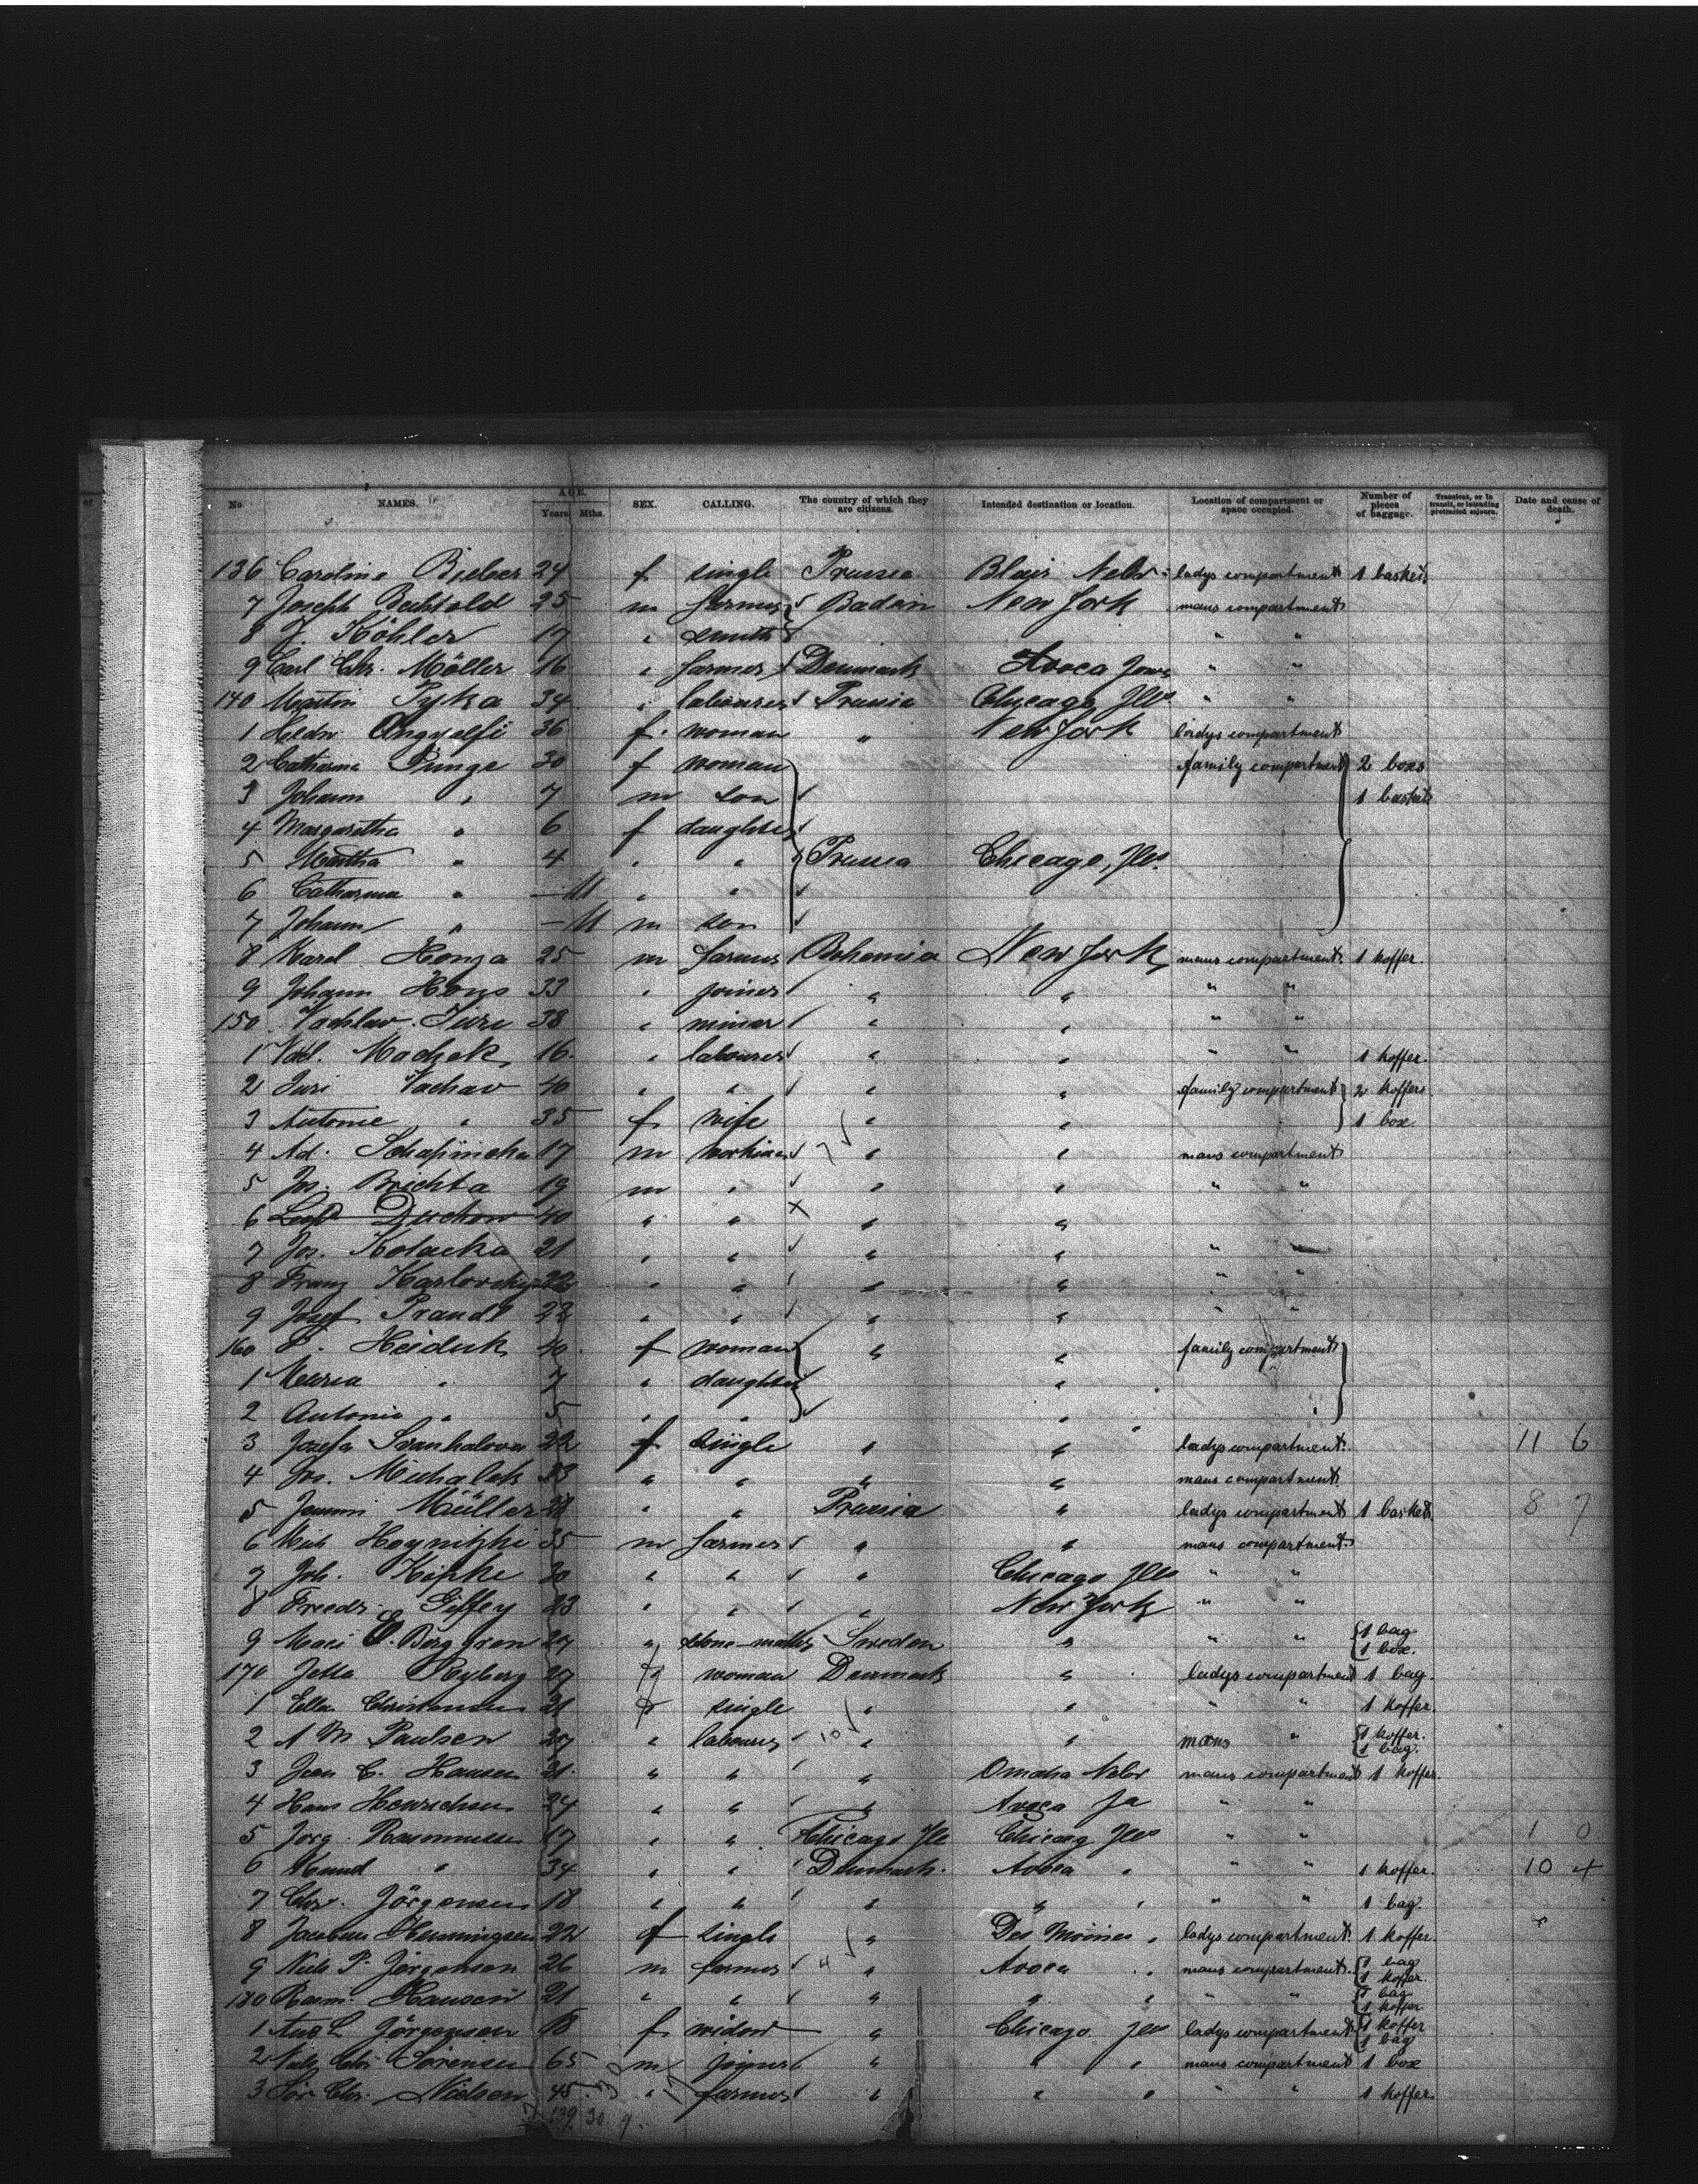 No. NAMES. AGE. Years Mths. SEX. CALLING. The country of which they are citizens. Intended destination or location. Location of compartment or space occupied. Number of pieces of baggage. Transient, or in transit, or intending protracted sojourn. Date and cause of death.
136 Caroline Bieber 24 f single Prussia Blair Nebr. ladys compartment 1 basket
7 Joseph Bechtold 25 m farmer Baden New York mans compartment
8 J. Köhler 17 " smith " "
9 Carl Chr. Möller 16 " farmer Denmark Avoca Jowa " "
140 Martin Pyka 34 " labourer Prussia Chicago Ills " "
1 Hedw. Angyalfi 36 f. woman " New York ladys compartment
2 Catharina Punge 30 f woman family compartment 2 boxs
3 Johann " 7 m son 1 basket
4 Margaretha " 6 f daughter
5 Martha " 4 " " Prussia Chicago, Ills.
6 Catharina " — 11 " "
7 Johann " — 11 m son
8 Karel Honza 25 m farmer Bohemia New York mans compartment 1 koffer.
9 Johann Honz 33 " joiner " " " "
150 Vachslav Juri 38 " minar " " " "
1 Vacl. Machek 16 " labourer " " " " 1 koffer.
2 Juri Vachav 40 " " " " family compartment 2 koffers
3 Antonie " 35 f wife " " 1 box
4 Ad. 17 m " " mans compartment
5 Jos. Brichta 19 m " " " " "
6 Leop. Duchon 40 " " " "
7 Jos. Kolacka 21 " " " " " "
8 Franz Karlovsky 22 " " " " " "
9 Josef Prandl 22 " " " " " "
160 Heiduk 40 f woman " " family compartment
1 Maria " 7 " daughter "
2 Antonia " 5 " " "
3 Josefa Svanhalova 22 f single " " ladys compartment. 11 6
4 Jos. Michalek 33 " " " " mans compartment
5 Müller 21 " " Prussia " ladys compartment 1 basket 8 7
6 Mich Hoynitzki 35 m farmer " " mans compartment.
7 Joh. Kipke 30 " " " Chicago Ills " "
8 Friedr. Giffey 23 " " " New York " "
9 E. Berggren 27 " Sweden " " " 1 bag 1 box.
170 Jetta Ryberg 27 f woman Denmark " ladys compartment 1 bag.
1 Ella Christensen 21 f single " " " " 1 koffer.
2 A M Paulsen 27 " labourer 10 " " mans " 1 koffer. 1 bag.
3 Jean C. Hansen 21 " " " Omaha Nebr mans compartment 1 koffer.
4 Hans Henrichsen 24 " " " Avoca Ja " "
5 Jorg. Rasmussen 17 " " Chicago Ills Chicag Ills " " 1 0
6 Knud " 34 " " Denmark. Avoca " " " 1 koffer. 10 4
7 Chr. Jörgensen 18 " " " " " " " 1 bag.
8 Jacobine Henningsen 22 f single " Des Moines " ladys compartment. 1 koffer
9 Niels P. Jörgensen 26 m farmer 4 " Avoca " mans compartment. 1 bag 1 koffer.
180 Rasm. Hansen 21 " " " " " " " 1 bag 1 koffer
1 Ane L Jörgensen 18 f widow " Chicago Ills ladys compartment 1 koffer 1 bag
2 Niels Chr. Sörensen 65 m joiner " " " mans compartment 1 box
3 Sör Chr. Nielsen 45 " farmer " " " " " 1 koffer.
139. 30. 9.